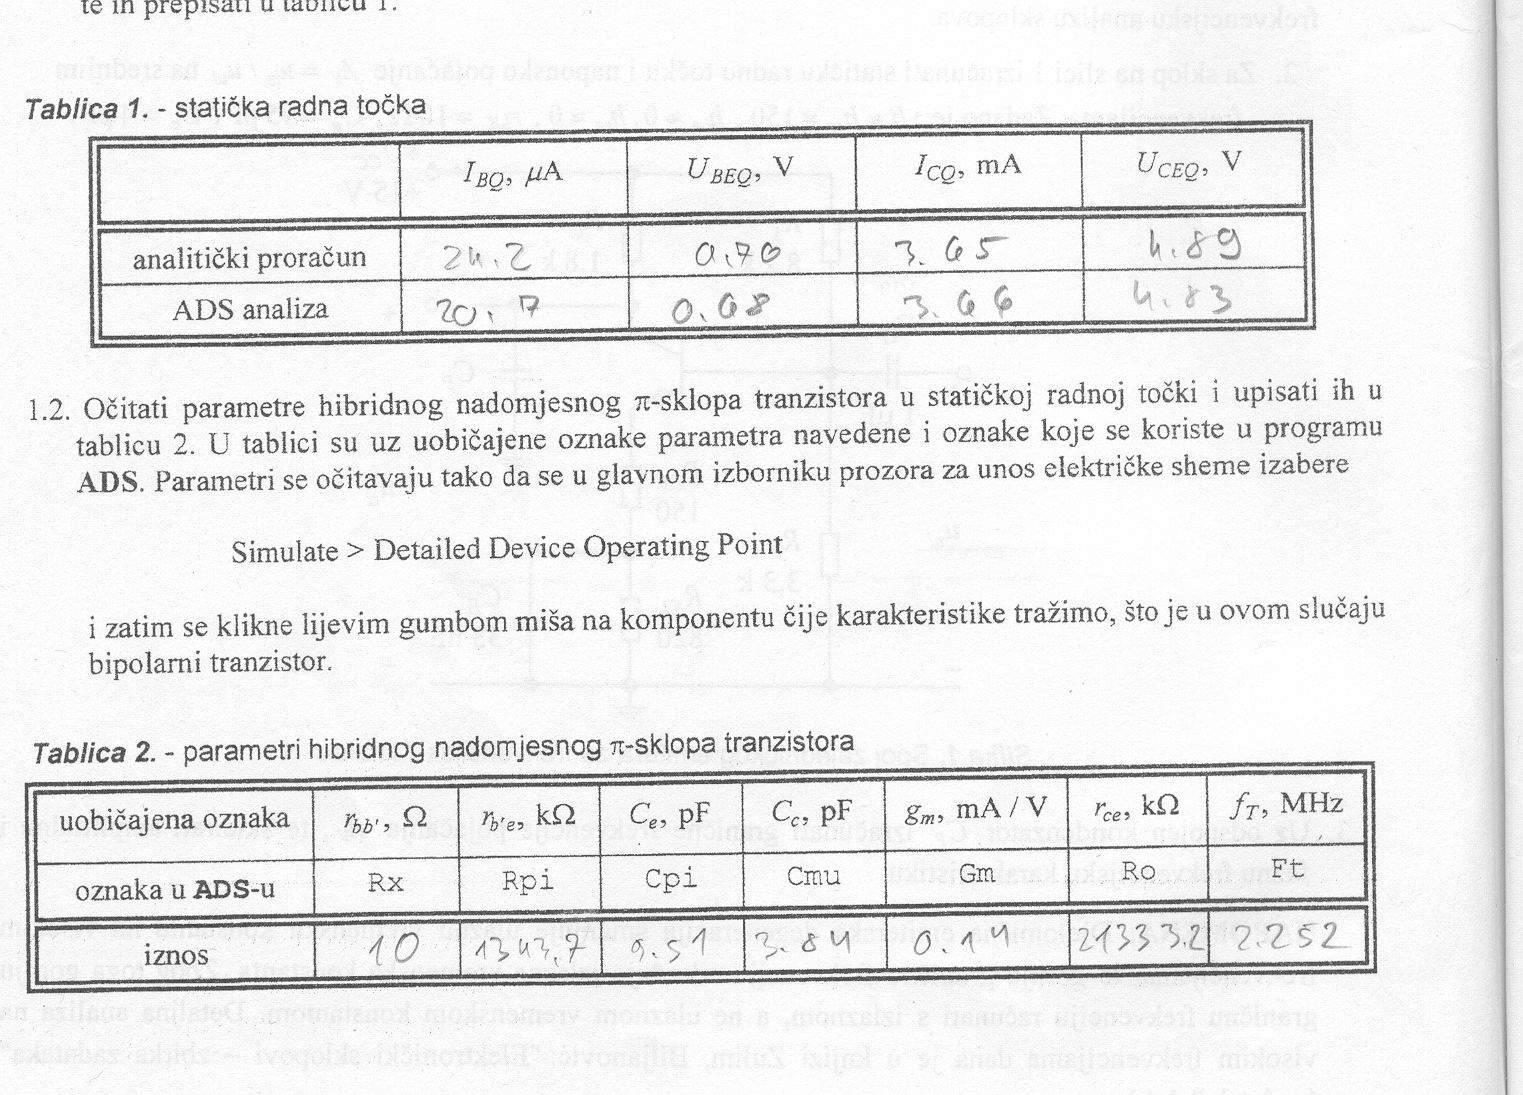 te ih prepisati u tablicu 1.
Tablica 1. - statička radna točka
I_BQ, μA U_BEQ, V I_CQ, mA U_CEQ, V
analitički proračun 24.2 0.70 3.65 4.89
ADS analiza 20.7 0.68 3.66 4.83
1.2. Očitati parametre hibridnog nadomjesnog π-sklopa tranzistora u statičkoj radnoj točki i upisati ih u
tablicu 2. U tablici su uz uobičajene oznake parametra navedene i oznake koje se koriste u programu
ADS. Parametri se očitavaju tako da se u glavnom izborniku prozora za unos električke sheme izabere
Simulate > Detailed Device Operating Point
i zatim se klikne lijevim gumbom miša na komponentu čije karakteristike tražimo, što je u ovom slučaju
bipolarni tranzistor.
Tablica 2. - parametri hibridnog nadomjesnog π-sklopa tranzistora
uobičajena oznaka r_bb', Ω r_b'e, kΩ C_e, pF C_c, pF g_m, mA / V r_ce, kΩ f_T, MHz
oznaka u ADS-u Rx Rpi Cpi Cmu Gm Ro Ft
iznos 10 1343.7 9.51 3.84 0.14 21333.2 2.252